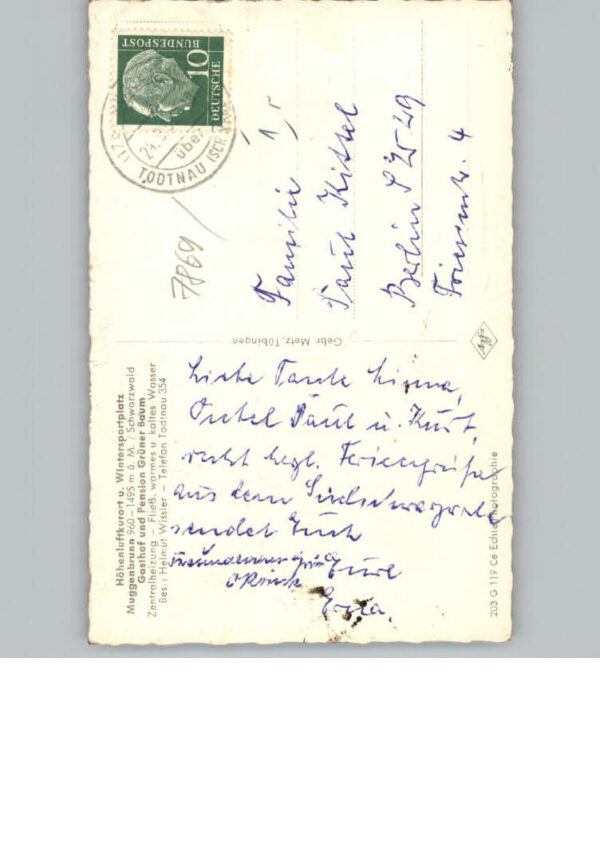 Höhenluftkurort u. Wintersportplatz
Muggenbrunn 960-1495 m ü. M. / Schwarzwald
Gasthof und Pension Grüner Baum
Zentralheizung - Fließ. warmes u. kaltes Wasser
Bes.: Helmut Wissler - Telefon Todtnau 354
Liebe Tante Minna,
Onkel Paul u. Kurt,
recht herzl. Feriengrüße
aus dem Südschwarzwald
sendet Euch
Eure
Erna.
203 G 119 Ce Echte Photographie
Gebr. Metz, Tübingen
DEUTSCHE
BUNDESPOST
10
über
TODTNAU (SCH
7869/
Familie
Paul Kittel
Berlin
4